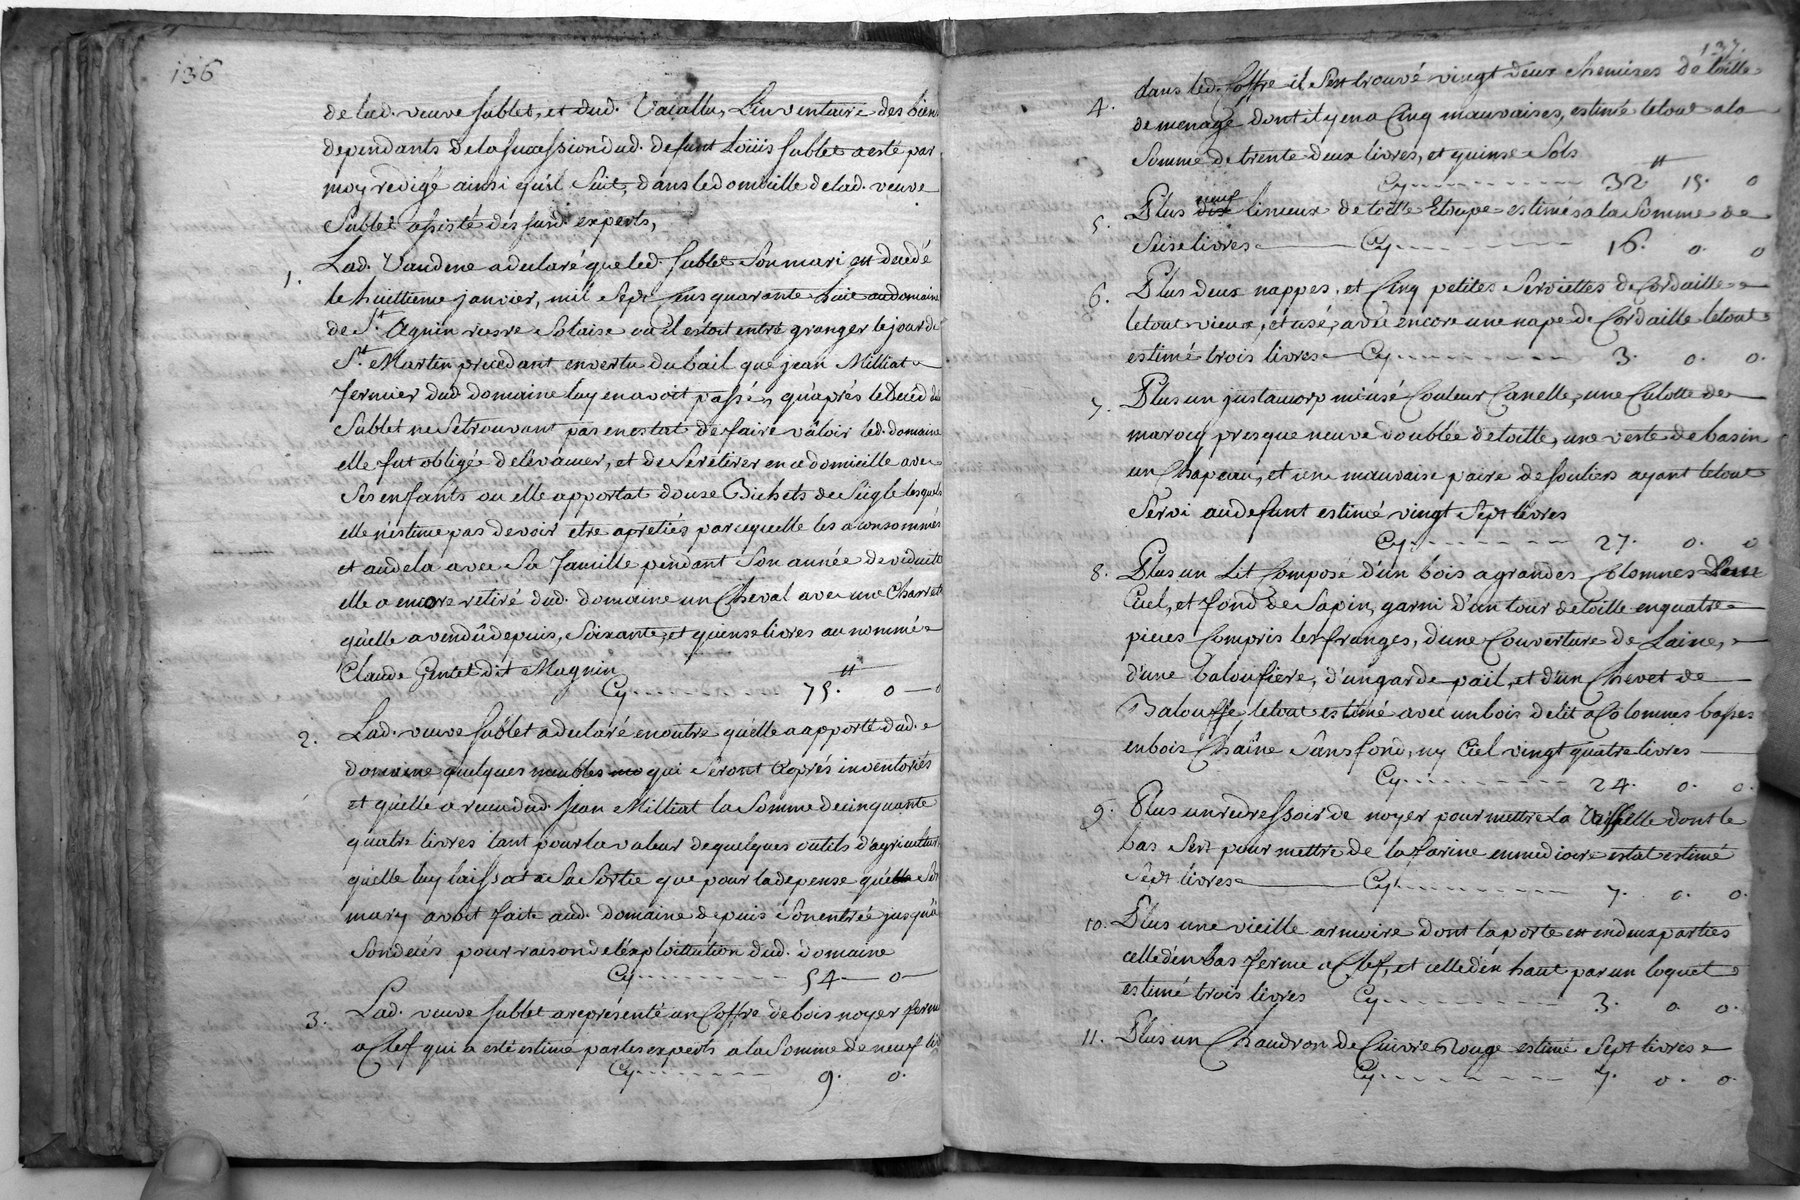 136
de lad. veuve Sublet, et dud. Vacalla, L'inventaire des bien
dependants de la succession dud. defunt Loüis Sublet a esté par
moy redigé ainsi quil suit, dans le domicille de lad. veuve
Sublet assisté des susd. experts,
1. Lad. Vandene a declaré que led. Sublet Son mari est decedé
le huittieme janvier, mil Sept Cens quarante huit au domaine
de St. Agnin riere Solaise ou il estoit entré granger le jour de
St. Martin precedant en vertu du bail que jean Milliat
fermier dud. domaine luy en avoit passé, qu'aprés le deced du
Sublet ne Se trouvant pas en estat de faire vâloir led. domaine
elle fut obligé d'elévamer, et de Se rétirer en ce domicille avec
Ses enfants ou elle apportat douse Bichets de Siegle lesquels
elle n'estime pas devoir etre apretiés parcequelle les a consommés
et audela avec Sa famille péndant Son année de viduité
elle a encore retiré dud. domaine un Cheval avec une Charrete
qu'elle a vendû depuis, Soixante, et quinse livres au nommé
Claude Gentet dit Magnin
Cy - - - - - 75.tt 0 — 0
2. Lad. veuve Sublet a declaré en outre qu'elle a apporté dud.
domaine quelques meubles qui Seront Cyaprés inventoriés
et qu'elle a recu dud. Jean Milliat la Somme de cinquante
quatre livres tant pour la valeur de quelques outils d'agriculture
qu'elle luy laissat a Sa Sortie que pour la depense que Son
mary avoit faite aud. domaine depuis Son entrée jusqu'a
Son decés pour raison de l'exploittation dud. domaine
Cy - - - - - 54 — 0
3. Lad. veuve Sublet a représenté un Coffre de bois noyer fermé
a Clef qui a esté estimé par les experts a la Somme de neuf liv
Cy - - - - - 9. 0.
137.
dans led. Coffre il S'est trouvé vingt deux Chemises de toille
4. de menage dont il y en a Cinq mauvaises, estimé le tout a la
Somme de trente deux livres, et quinse Sols
Cy - - - - - 32tt 15. 0
neuf
5. Plus dix linceux de toille Etoupe estimés a la Somme de
Seise livres Cy - - - - - 16. 0. 0
6. Plus deux nappes, et Cinq petites Serviettes de Cordaille
le tout vieux, et usé, avec encore une nape de Cordaille le tout
estimé trois livres Cy - - - - - 3. 0. 0.
7. Plus un justaucorp mi usé Couleur Canelle, une Culotte de
marocq presque neuve doublée de toille, une veste de basin
un Chapeau, et une mauvaise paire de souliers ayant le tout
Servi au defunt estimé vingt Sept livres
Cy - - - - - 27. 0. 0
8. Plus un Lit Composé d'un bois a grandes Colomnes
Ciel, et fond de Sapin, garni d'un tour de toille en quatre
pieces Compris les franges, d'une Couverture de Laine,
d'une baloufiere, d'un garde pail, et d'un Chevet de
Balouffe, le tout estimé avec un bois de lit a Colomnes basses
en bois Chaîne Sans fond, ny Ciel vingt quatre livres
Cy - - - - - 24. 0. 0.
9. Plus un redressoir de noyer pour mettre La Vaisselle dont le
bas Sert pour mettre de la farine en mediocre estat estimé
Sept livres Cy - - - - - 7. 0. 0.
10. Plus une vieille armoire dont la porte est en deux parties
celle d'en bas ferme a Clef, et celle d'en haut par un loquet
estimé trois livres Cy - - - - - 3. 0. 0.
11. Plus un Chaudron de Cuivre Rouge estimé Sept livres
Cy - - - - - 7. 0. 0.